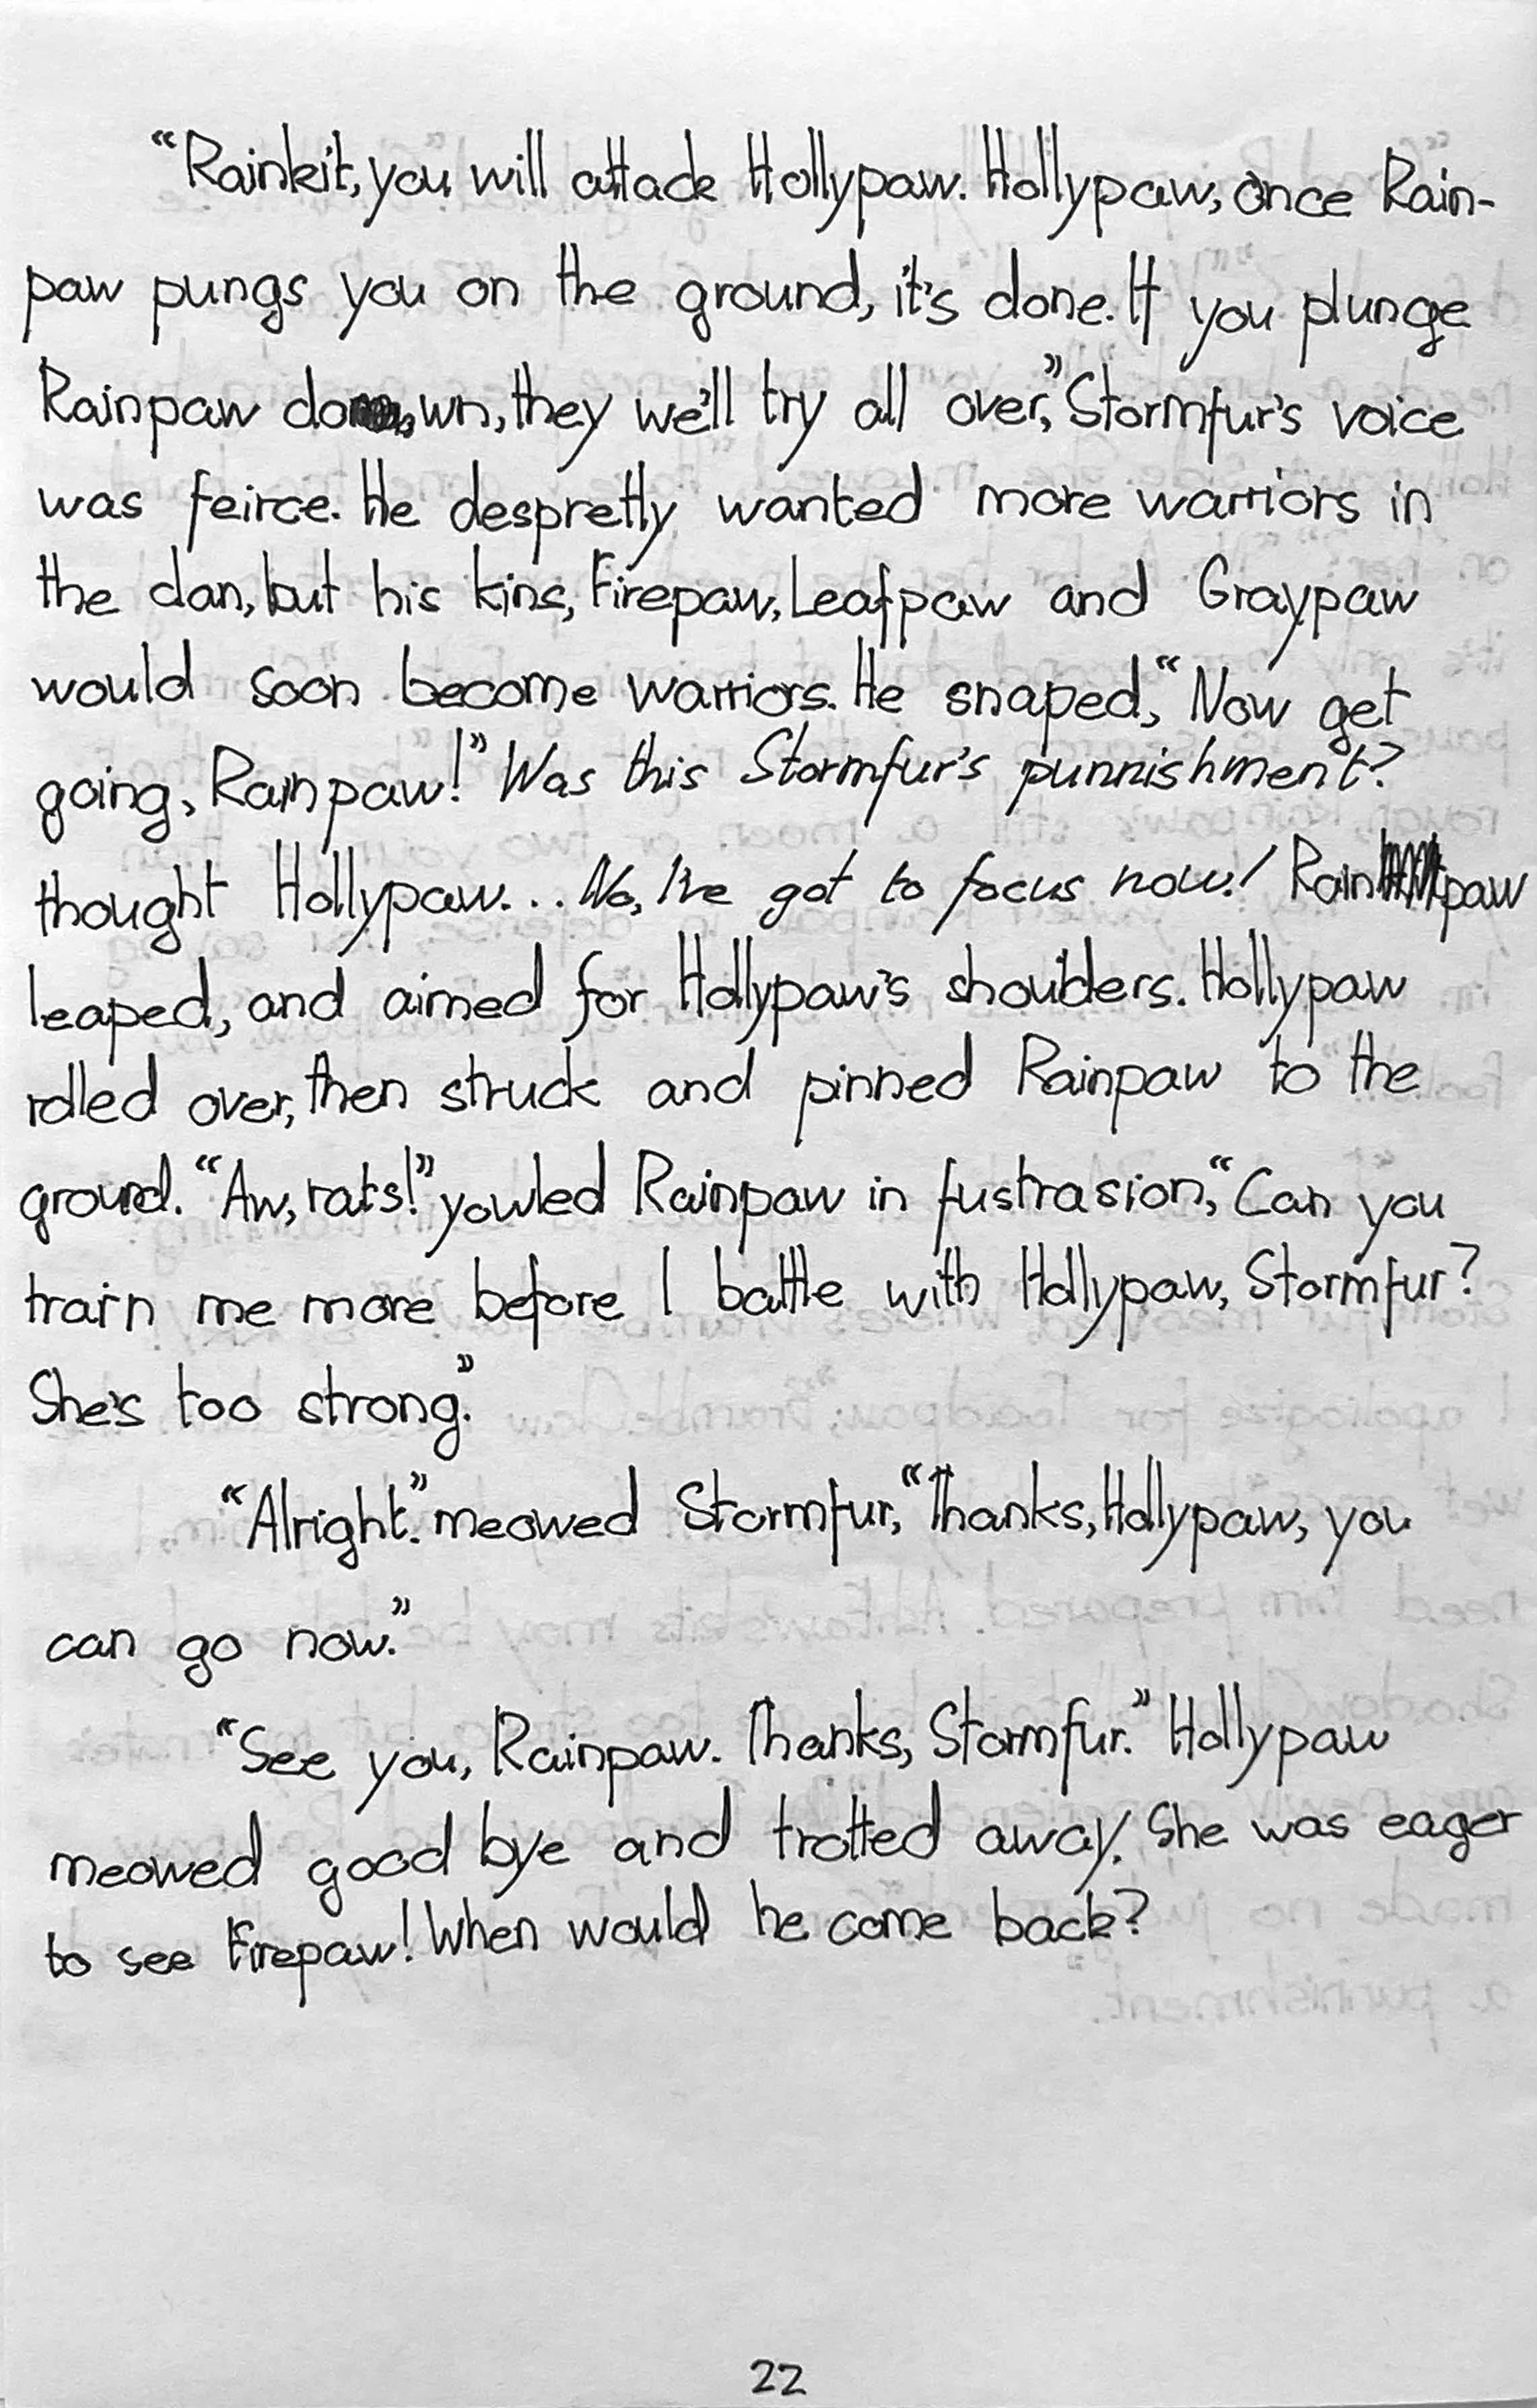 “Rainkit, you will attack Hollypaw. Hollypaw, once Rain-
paw pungs you on the ground, it's done. If you plunge
Rainpaw down, they we'll try all over,” Stormfur's voice
was feirce. He despretly wanted more warriors in
the clan, but his kins, Firepaw, Leafpaw and Graypaw
would soon become warriors. He snaped, “Now get
going, Rainpaw!” Was this Stormfur's punnishment?
thought Hollypaw... No, I've got to focus now! Rainpaw
leaped, and aimed for Hollypaw's shoulders. Hollypaw
rolled over, then struck and pinned Rainpaw to the
ground. “Aw, rats!” yowled Rainpaw in fustrasion, “Can you
train me more before I battle with Hollypaw, Stormfur?
She's too strong.”
“Alright.” meowed Stormfur, “Thanks, Hollypaw, you
can go now.”
“See you, Rainpaw. Thanks, Stormfur.” Hollypaw
meowed good bye and trotted away. She was eager
to see Firepaw! When would he come back?
22